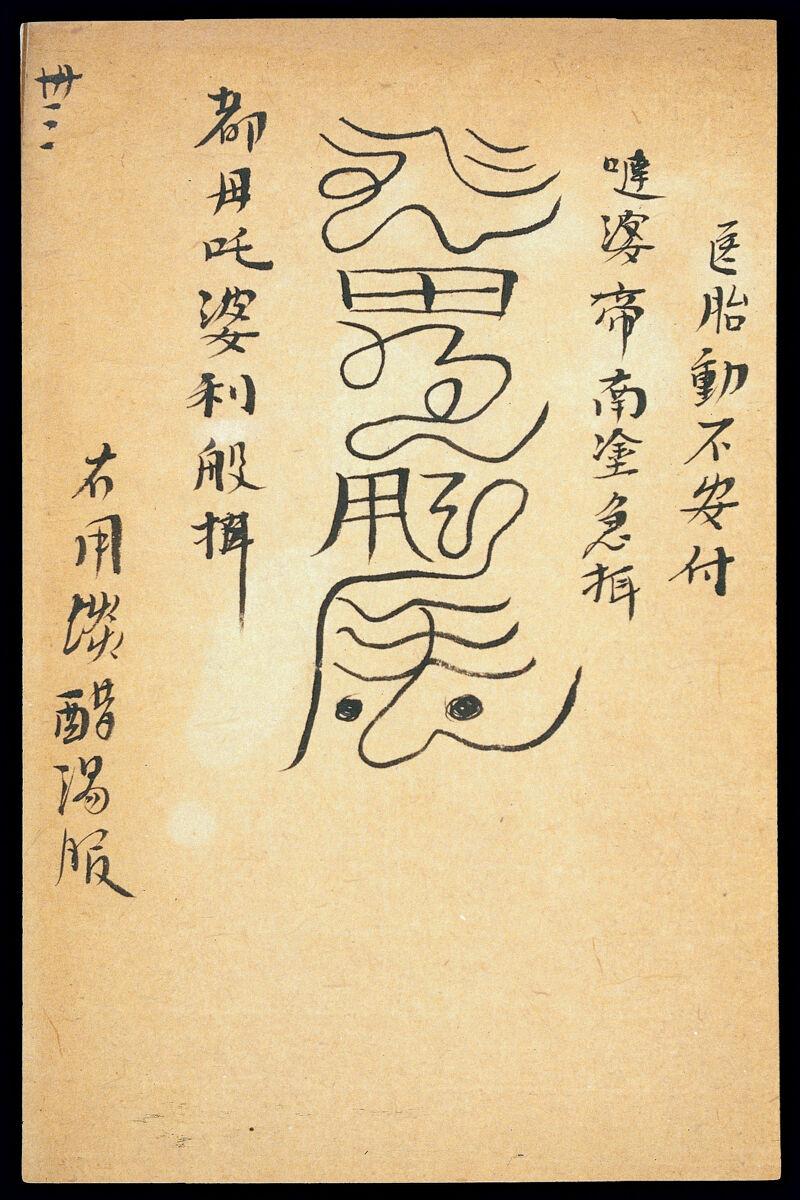 医胎動不安付
嗹婆帝南塗急揖
都毋吒婆利般揖
右用淡醋湯服
卅二